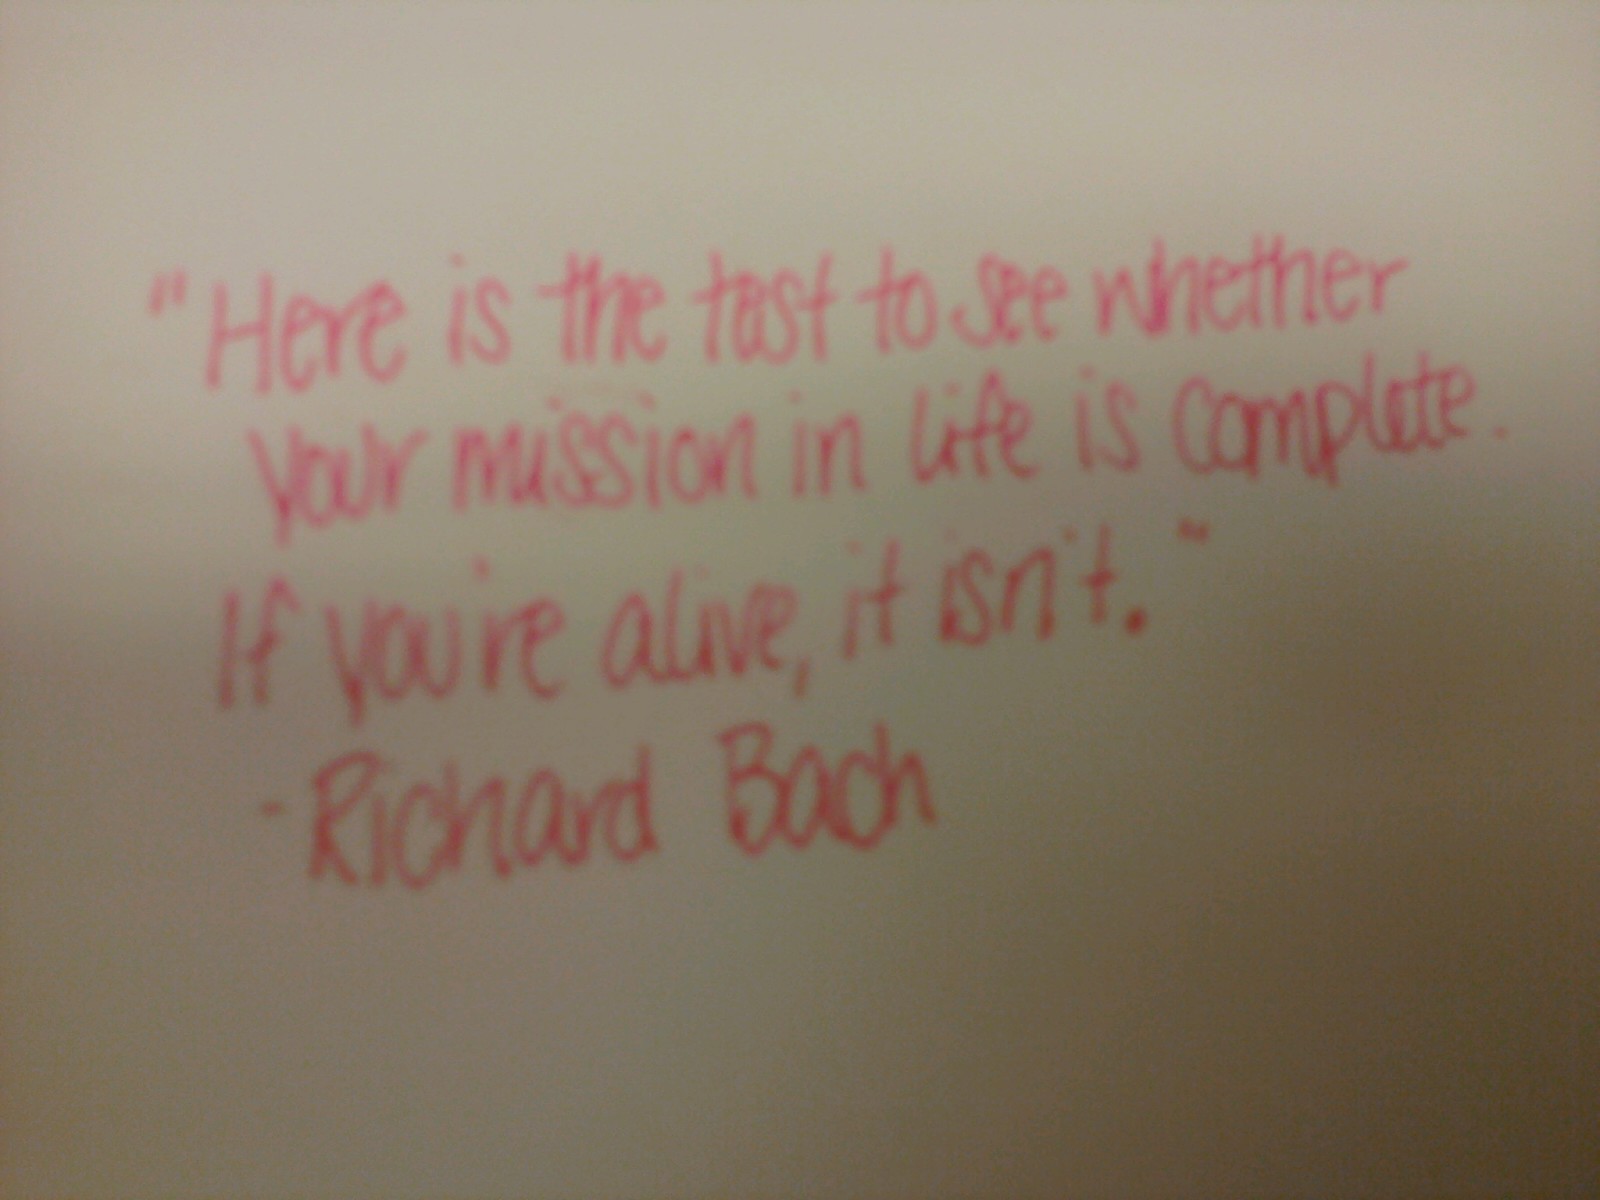 "Here is the test to see whether
your mission in life is complete.
If you're alive, it isn't."
-Richard Bach